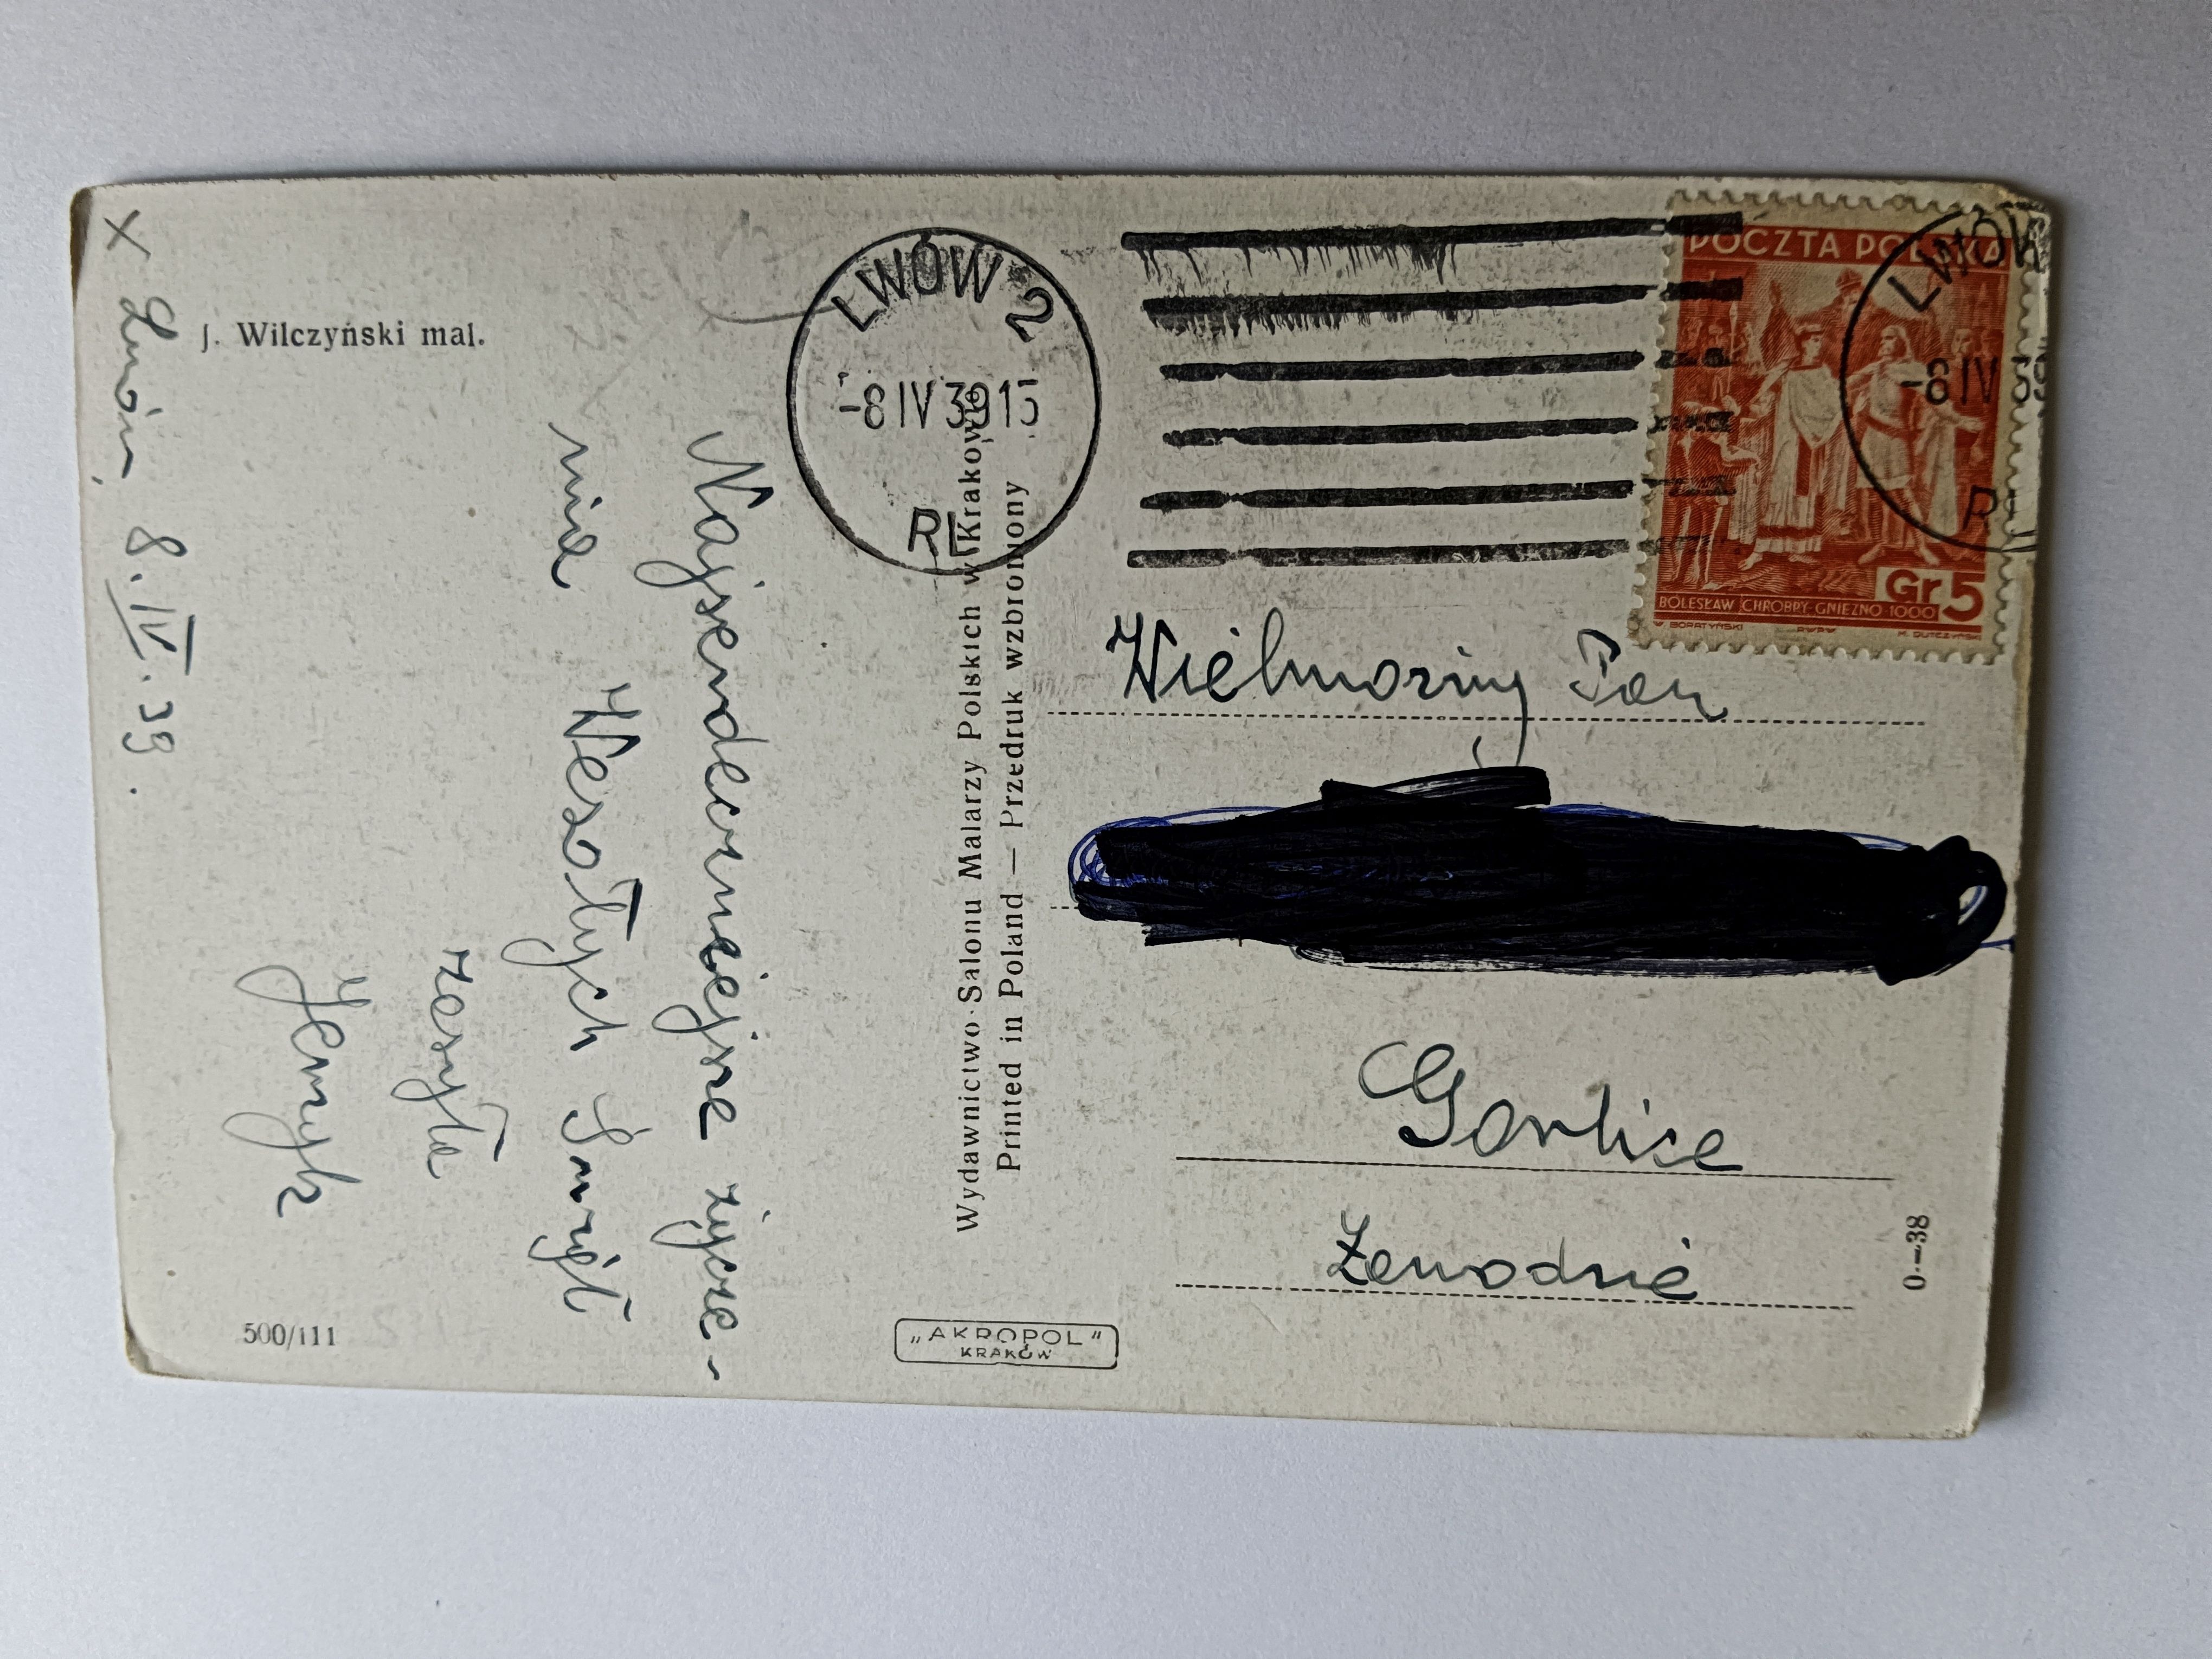 x Lwów, 8.IV.39.
J. Wilczyński mal.
Najserdeczniejsze życze-
nia Wesołych Świąt
zasyła
Henryk
500/111
LWÓW 2
-8 IV 39 15
RL
Wydawnictwo Salonu Malarzy Polskich w Krakowie
Printed in Poland — Przedruk wzbroniony
„AKROPOL"
KRAKÓW
POCZTA POLSKA
Gr 5
BOLESŁAW CHROBRY-GNIEZNO-1000
W. BORATYŃSKI PWPW M. DUTCZYŃSKI
LWÓW
-8 IV 39
RL
Wielmożny Pan
Gorlice
Zawodzie
0—38